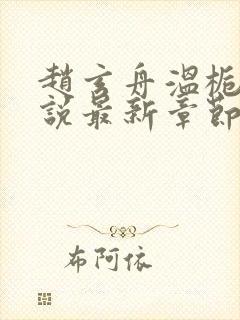 趙玄舟溫栀
說最新章節
布阿依